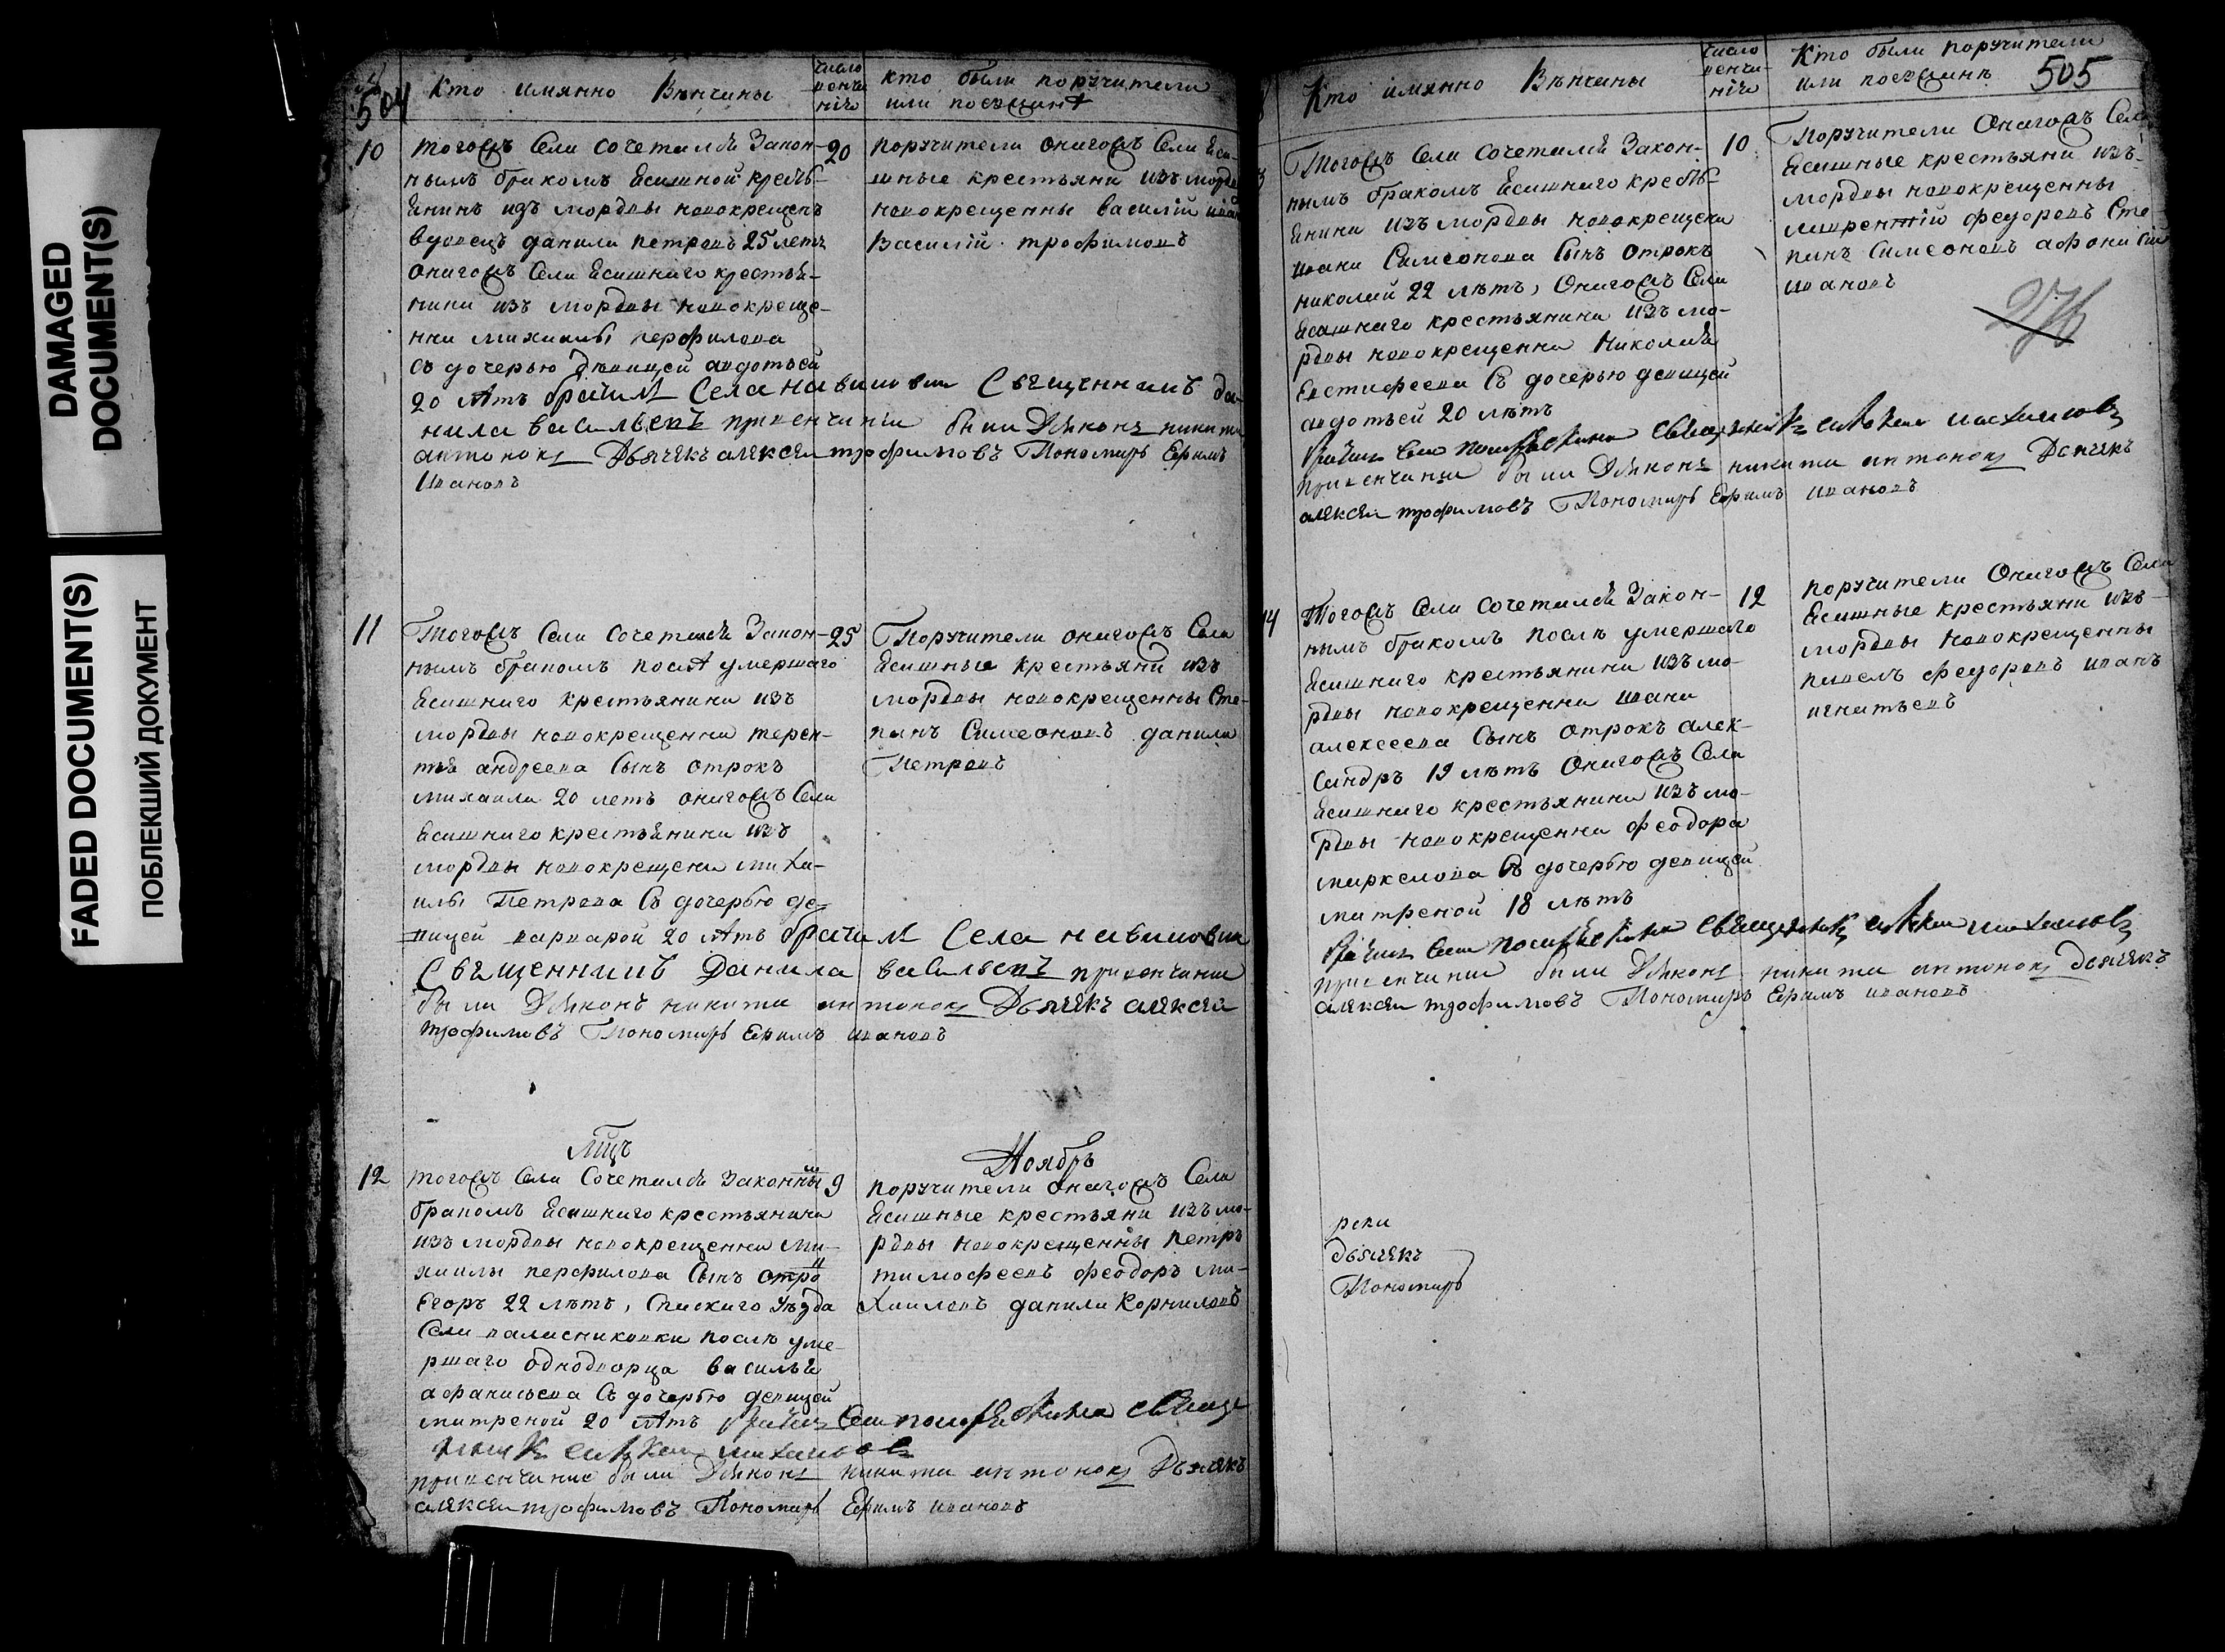 DAMAGED
DOCUMENT(S)
FADED DOCUMENT(S)
ПОБЛЕКШИЙ ДОКУМЕНТ
504
Кто имянно Вѣнчаны
число
венча
нія
кто были поручители
или поезжанѣ
10
тогожъ Села сочетался Закон-
20
нымъ бракомъ Ясашной крестья-
янинъ изъ мордвы новокрещенъ
вдовецъ данила петровъ 25 летъ
онагожъ Села Ясашнаго крестья-
нина изъ мордвы новокреще-
нна михаилы перфилова
съ дочерью дѣвицей авдотьей
20 лѣтъ бракъ Села
Священникъ да-
нила васильевъ при венчании были Дьяконъ никита
антоновъ Дьячекъ алексеи трофимовъ Пономарь Ефимъ
Ивановъ
поручители онагожъ Села Яса-
шные крестьяни изъ мордвы
новокрещенны василій иван
Василій трофимовъ
11
Тогожъ Села Сочетался Закон-
25
нымъ бракомъ послѣ умершаго
Ясашнаго крестьянина изъ
мордвы новокрещенна терен-
тья андреева Сынъ отрокъ
михаила 20 летъ онагожъ Села
Ясашнаго крестьянина изъ
мордвы новокрещена миха-
илы Петрова Съ дочерью де-
вицей варварой 20 лѣтъ бракъ Села
Священникъ Данила васильевъ при венчании
были Дьяконъ никита антоновъ Дьячекъ алексеи
трофимовъ Пономарь Ефимъ ивановъ
Поручители онагожъ Села
Ясашные крестьяни изъ
мордвы новокрещенны Сте-
панъ Симеоновъ данила
Петровъ
Мцъ
Ноябрь
12
тогожъ Села Сочетался Законны
9
бракомъ Ясашнаго крестьянина
изъ мордвы новокрещенна ми-
хаилы перфилова Сынъ отро
Егоръ 22 лѣтъ, Спаскаго уѣзда
Села
послѣ уме-
ршаго однодворца василья
афанасьева Съ дочерью девицей
матреной 20 лѣтъ
Села
свяще
михаиловъ
при венчание были Дьяконъ никита антоновъ Дьячекъ
алексеи трофимовъ Пономарь Ефимъ ивановъ
поручители онагожъ Села
Ясашные крестьяни изъ мо-
рдвы новокрещенны петръ
тимофеевъ феодоръ ми-
хаиловъ данила Корниловъ
505
Кто имянно Вѣнчаны
число
венча-
нія
Кто были поручители
или поезжанѣ
Тогожъ Села Сочетался Закон-
10
нымъ бракомъ Ясашнаго кресть-
янина изъ мордвы новокрещена
ивана Симеонова Сынъ отрокъ
николай 22 лѣтъ, Онагожъ Села
Ясашнаго крестьянина изъ мо-
рдвы новокрещенна Николая
Евстифеева Съ дочерью девицей
авдотьей 20 лѣтъ
Села
священникъ
михаиловъ
при венчание были Дьяконъ никита антоновъ Дьячекъ
алексеи трофимовъ Пономарь Ефимъ ивановъ
Поручители Онагожъ Села
Ясашные крестьяни изъ-
мордвы новокрещенны
лаврентій федоровъ Сте-
панъ Симеоновъ афонасій
ивановъ
276
14
Тогожъ Села Сочетался Закон-
12
нымъ бракомъ послѣ умершаго
Ясашнаго крестьянина изъ мо-
рдвы новокрещенна ивана
алексеева Сынъ отрокъ алек-
сандръ 19 лѣтъ Онагожъ Села
Ясашнаго крестьянина изъ мо-
рдвы новокрещенна феодора
маркелова Съ дочерью девицей
матреной 18 лѣтъ
Села
священникъ
михаиловъ
при венчание были Дьяконъ никита антоновъ Дьячекъ
алексеи трофимовъ Пономарь Ефимъ ивановъ
поручители Онагожъ Села
Ясашные крестьяни изъ-
мордвы новокрещенны
павелъ федоровъ иванъ
игнатьевъ
реки
дьячекъ
Пономарь